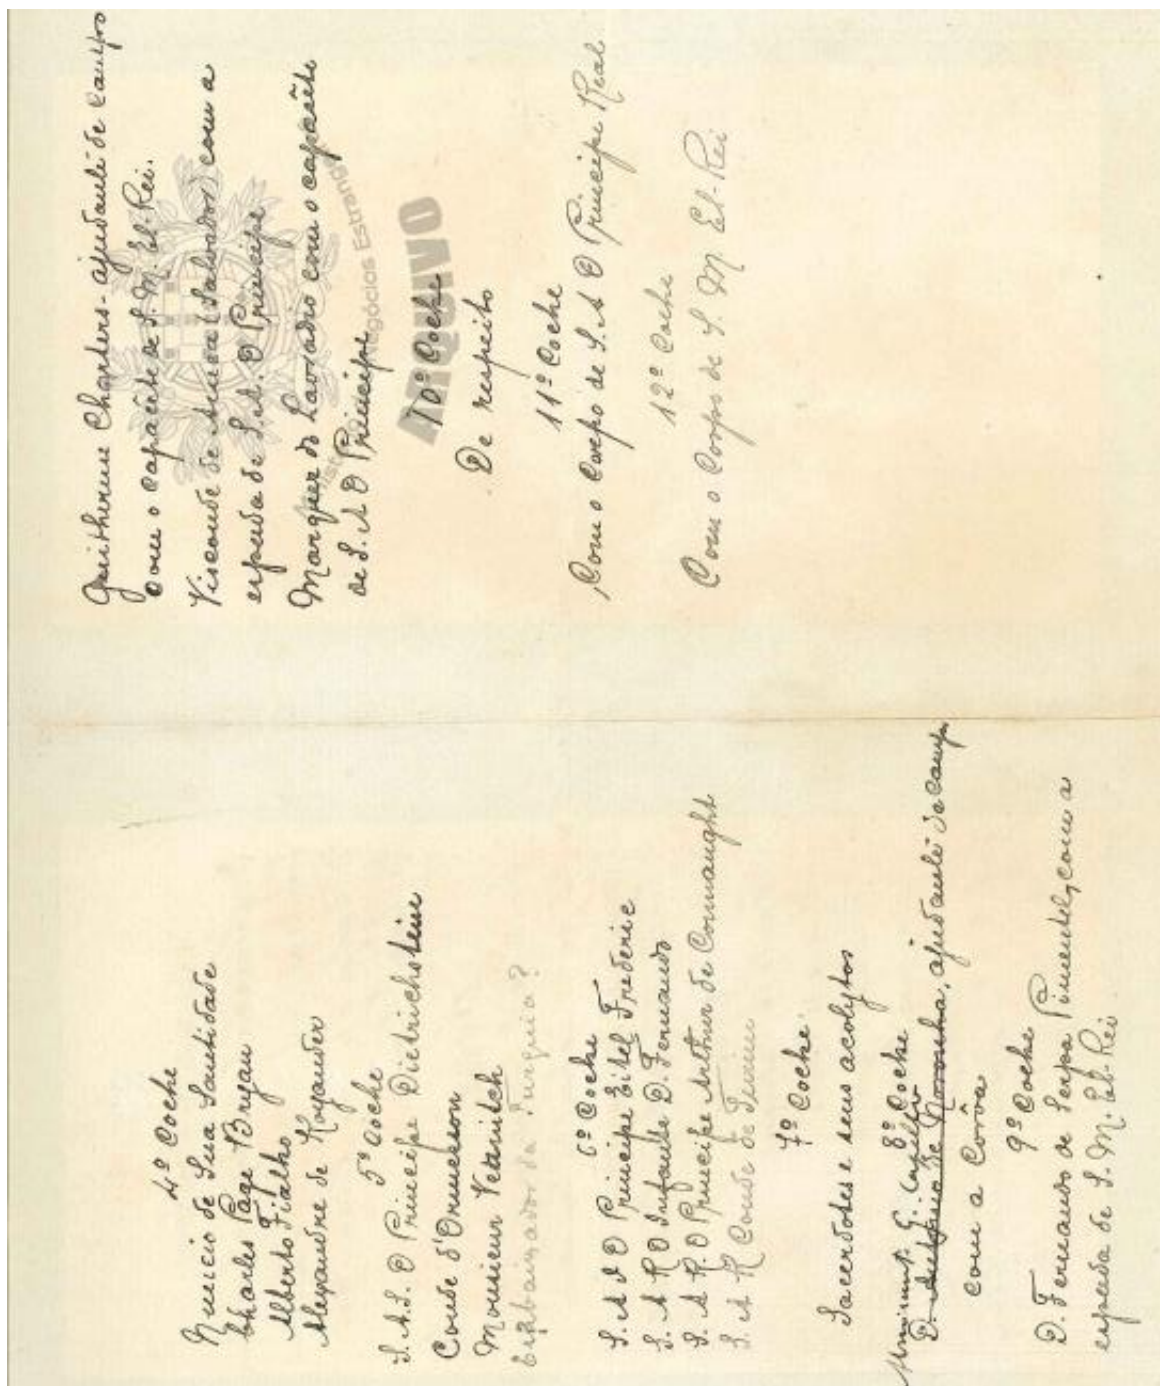 4º Coche
Nuncio de Sua Santidade
Charles Page Bryan
Alberto Fialho
Alexandre de Koyander
5º Coche
S.A.S. O Principe Dietrichstein
Conde d'Ormesson
Monsieur
Embaixador da Turquia?
6º Coche
S. A I O Principe Eitel Frederic
S. A R O Infante D. Fernando
S. A R. O Principe Arthur de Connaught
S. A R Conde de Turim
7º Coche
Sacerdotes e seus acolytos
8º Coche
G. Capello
D. Antonio de Noronha, ajudante de campo
com a Corôa
9º Coche
D. Fernando de Serpa Pimentel, com a
espada de S. M. El-Rei
Guilherme Charters - ajudante de campo
com o capacête de S. M. El-Rei.
Visconde de Asseca (Salvador) com a
espada de S. A. O Principe
Marquez do Lavradio com o capacête
de S. A O Principe
10º Coche
De respeito
11º Coche
Com o Corpo de S. A O Principe Real
12º Coche
Com o Corpo de S. M El-Rei
ARQUIVO
Negócios Estrang